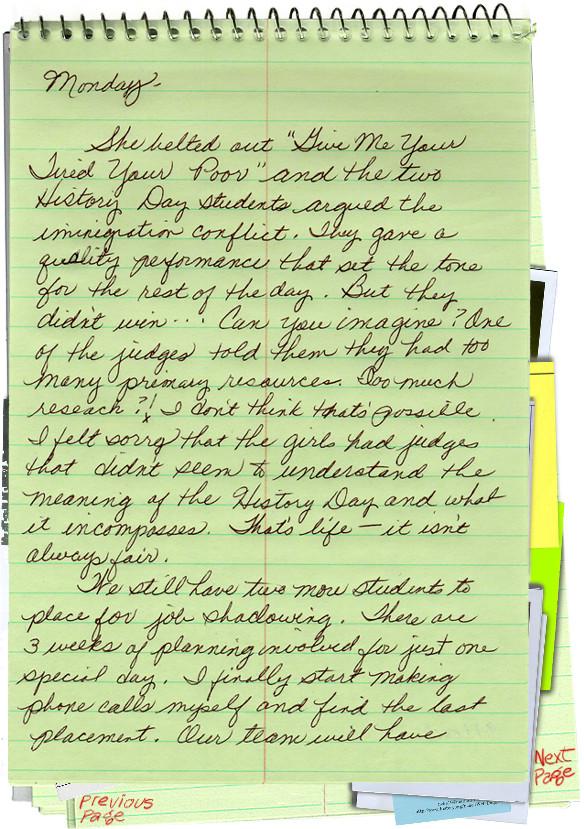 Monday-
She belted out "Give Me Your
Tired Your Poor" and the two
History Day students argued the
iminigration conflict. They gave a
quality performance that set the tone
for the rest of the day. But they
didn't win... Can you imagine? One
of the judges told them they had too
many primary resources. Too much
reseach?! I don't think that's possible.
I felt sorry that the girls had judges
that didn't seem to understand the
meaning of the History Day and what
it incompasses. That's life - it isn't
always fair.
We still have two more students to
place for job shadowing. There are
3 weeks of planning involved for just one
special day. I finally start making
phone calls myself and find the last
placement. Our team will have
Next
Page
Previous
Page